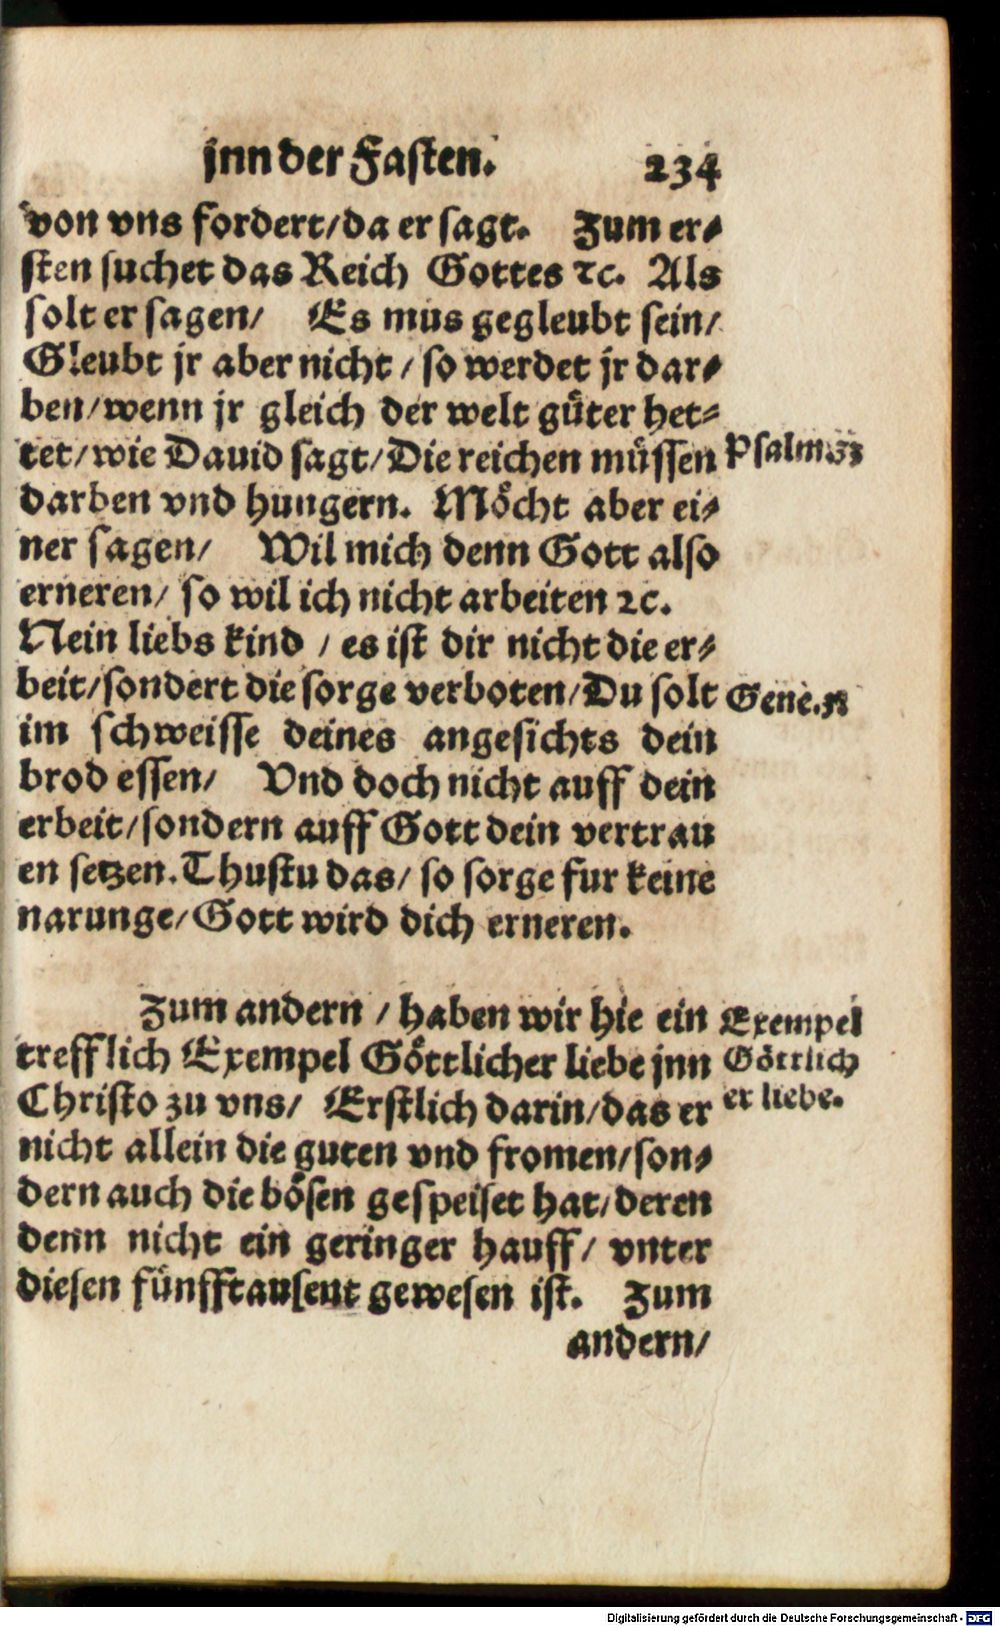 jnn der Fasten. 234
von vns fordert/da er sagt. Zum er⸗
sten suchet das Reich Gottes ꝛc. Als
solt er sagen/ Es mus gegleubt sein/
Gleubt jr aber nicht / so werdet jr dar⸗
ben/wenn jr gleich der welt güter het⸗
tet/wie Dauid sagt/Die reichen müssen
Psalm.
darben vnd hungern. Möcht aber ei⸗
ner sagen/ Wil mich denn Gott also
erneren/ so wil ich nicht arbeiten ꝛc.
Nein liebs kind / es ist dir nicht die er⸗
beit/sondert die sorge verboten/Du solt
Gene.
im schweisse deines angesichts dein
brod essen/ Vnd doch nicht auff dein
erbeit/sondern auff Gott dein vertrau
en setzen.Thustu das/ so sorge fur keine
narunge/Gott wird dich erneren.
Zum andern / haben wir hie ein
trefflich Exempel Göttlicher liebe jnn
Christo zu vns/ Erstlich darin/das er
Exempel
Göttlich
er liebe.
nicht allein die guten vnd fromen/son⸗
dern auch die bösen gespeiset hat/deren
denn nicht ein geringer hauff/ vnter
diesen fünfftausent gewesen ist. Zum
andern/
Digitalisierung gefördert durch die Deutsche Forschungsgemeinschaft - DFG